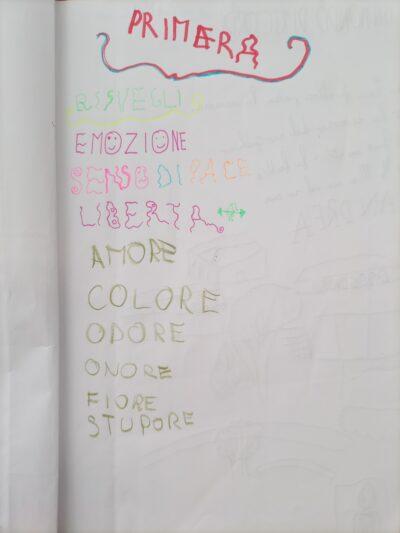 PRIMERA
RISVEGLI
EMOZIONE
SENSO DI PACE
LIBERTA
AMORE
COLORE
ODORE
ONORE
FIORE
STUPORE